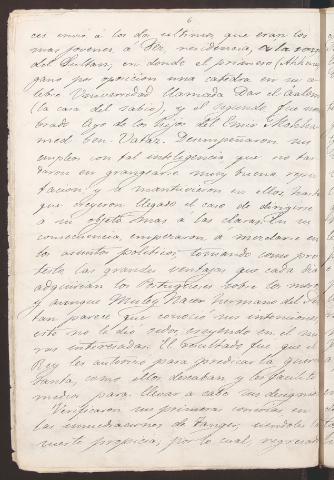 6
ces envió á los dos ultimos que eran los
mas jovenes á Fez, residencia, á la sazon
del Sultan, en donde el primero (Alhame
gano por oposicion una catedra en su ce
lebre Universidad llamada Dar el Aalem
(la casa del sabio), y el segundo fue nom
brado Ayo de los hijos del Emir Moha
med ben Vataz. Desempeñaron sus
empleos con tal inteligencia que no tar
daron en grangearse muy buena repu
tacion, y se mantuvieron en ellos hasta
que creyeron llegado el caso de dirigirse
á su objeto mas á las claras. En su
consecuencia, empezaron á mezclarse en
los asuntos politicos, tomando como pre
testo las grandes ventajas que cada dia
adquirian los Portugueses sobre los moros
y aunque Muley Nacer hermano del Sul
tan parece que conoció sus intenciones
esto no le dio credito, creyendo en el
ras interesadas. El resultado fue que el
Rey les autorizó para predicar la guerra
santa, como ellos deseaban y les facilitó
medios para llevar á cabo sus designios
Verificaron sus primeras correrias en
las inmediaciones de Tanger, siendoles la
suerte propicia, por lo cual, regresado